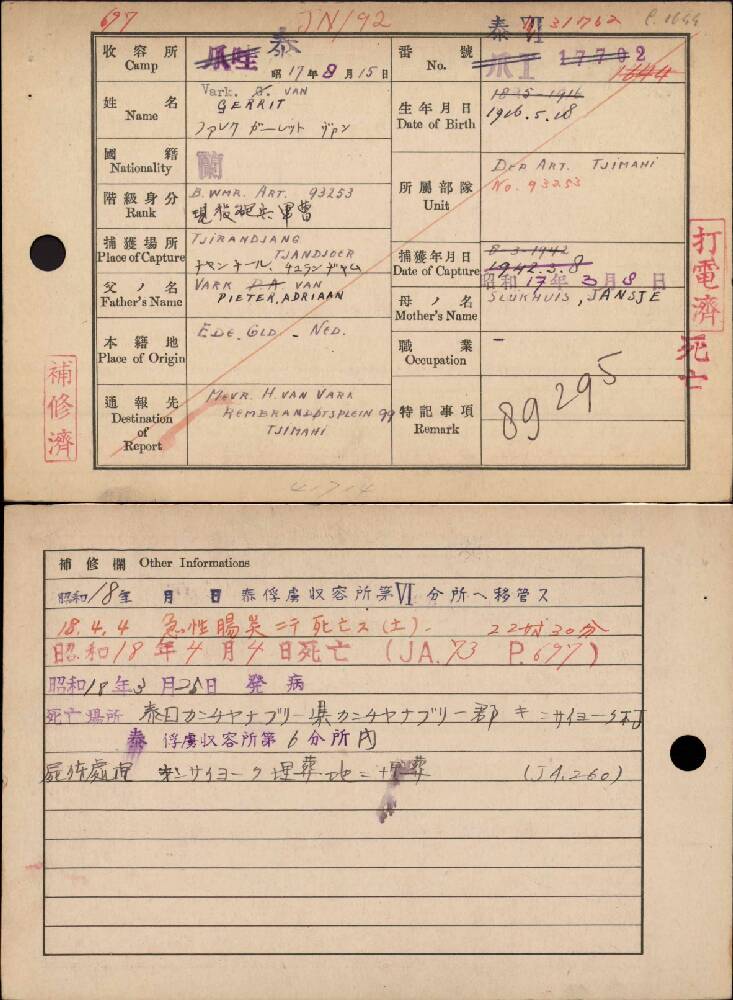 697
JN192
泰 Ⅵ 31762
P. 1644
收容所 Camp
爪哇 泰
昭17年8月15日
番號 No.
爪 I 17702
1644
姓名 Name
Vark. G. VAN
GERRIT
ファルク ガーレット ヴァン
生年月日 Date of Birth
1835-1916
1916.5.18
國籍 Nationality
蘭
階級身分 Rank
B. WMR. ART. 93253
現役砲兵軍曹
所属部隊 Unit
DEP ART. TJIMAHI
No. 93253
捕獲場所 Place of Capture
TJIRANDJANG
TJANDJOER
チヤンヂール、チランヂヤム
捕獲年月日 Date of Capture
8-3-1942
1942.3.8
昭和17年3月8日
父ノ名 Father's Name
VARK P.A. VAN
PIETER, ADRIAAN
母ノ名 Mother's Name
SLUKHUIS, JANSJE
本籍地 Place of Origin
EDE. GLD. - NED.
職業 Occupation
-
通報先 Destination of Report
MEVR. H. VAN VARK
REMBRANDTSPLEIN 99
TJIMAHI
特記事項 Remark
89295
打電濟
死亡
補修濟
補修欄 Other Informations
昭和18年 月 日 泰俘虜収容所第Ⅵ分所ヘ移管ス
18.4.4 急性腸炎ニテ死亡ス(土). 22時30分
昭和18年4月4日死亡 (JA.73 P.697)
昭和18年3月28日 発病
死亡場所 泰国カンチヤナブリー県カンチヤナブリー郡キンサイヨーク村
泰俘虜収容所第6分所内
屍体處理 キンサイヨーク埋葬地ニ埋葬 (JA.260)